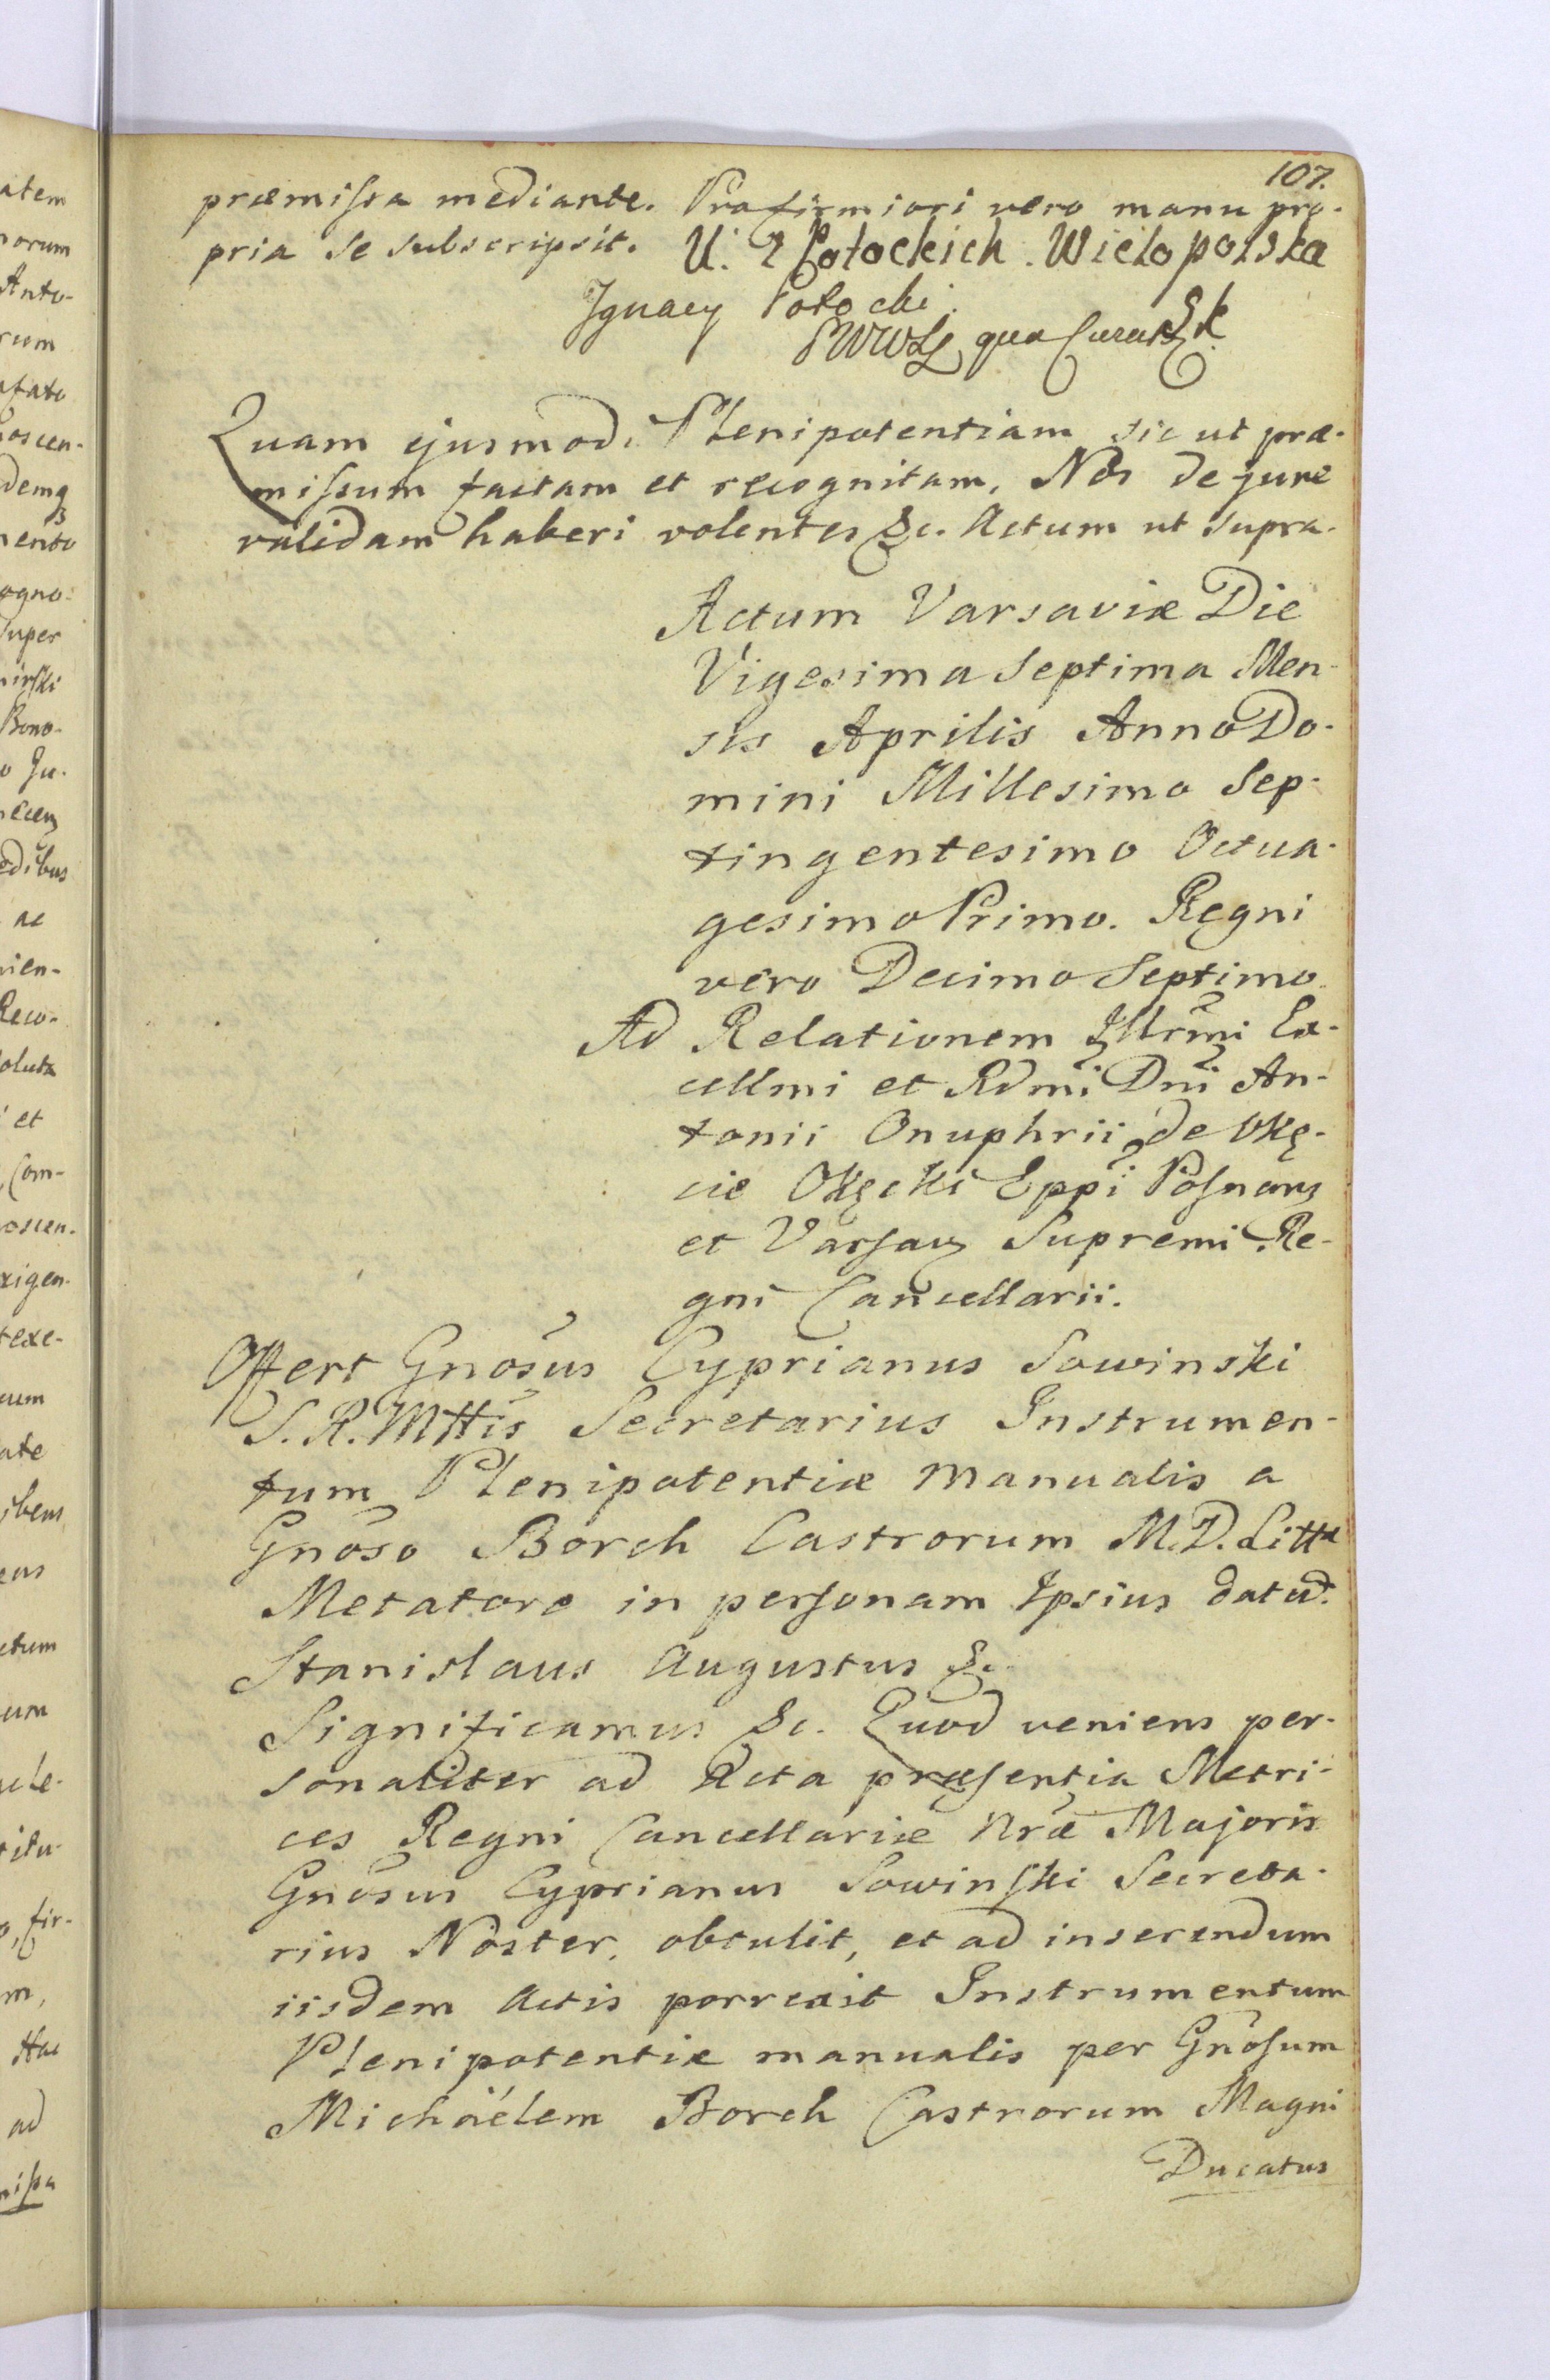 107.
præmissa mediante. Pro firmiori vero manu pro-
pria se subscripsit. U. z Potockich Wielopolska
Ignacy Potocki
PWWXL qua Curator
Quam ejusmodi Plenipotentiam sic ut præ-
missum factam et recognitam, Nos de jure
validam haberi volentes &c. Actum ut supra.
Actum Varsaviæ Die
Vigesima Septima Men-
sis Aprilis Anno Do-
mini Millesimo Sep-
tingentesimo Octua-
gesimo Primo. Regni
vero Decimo Septimo.
Ad Relationem Illrm̃i Ex-
cellmi et Rdm̃i Dñi An-
tonii Onuphrii de Okę-
cie Okęcki Epp̃i Posnanz
et Varsavz Supremi Re-
gni Cancellarii.
Offert Gnõsus Cyprianus Sowinski
S. R. Mttis Secretarius Instrumen-
tum Plenipotentiæ manualis a
Gnõso Borch Castrorum M. D. Littæ
Metatore in personam Ipsius datu͂.
Stanislaus Augustus &c.
Significamus &c. Quod veniens per-
sonaliter ad Acta præsentia Metri-
ces Regni Cancellariæ Nræ Majoris
Gnõsus Cyprianus Sowinski Secreta-
rius Noster, obtulit, et ad inserendum
iisdem Actis porrexit Instrumentum
Plenipotentiæ manualis per Gnõsum
Michäelem Borch Castrorum Magni
Ducatus
atem
norum
Anto-
rum
afato
noscen-
demq
mento
ogno-
super
Bono-
o Ju-
edibus
ac
nien-
Reco-
oluta
et
Com-
oscen-
xigen-
texe-
ate
ctum
um
fir-
m,
Hac
ad
missa